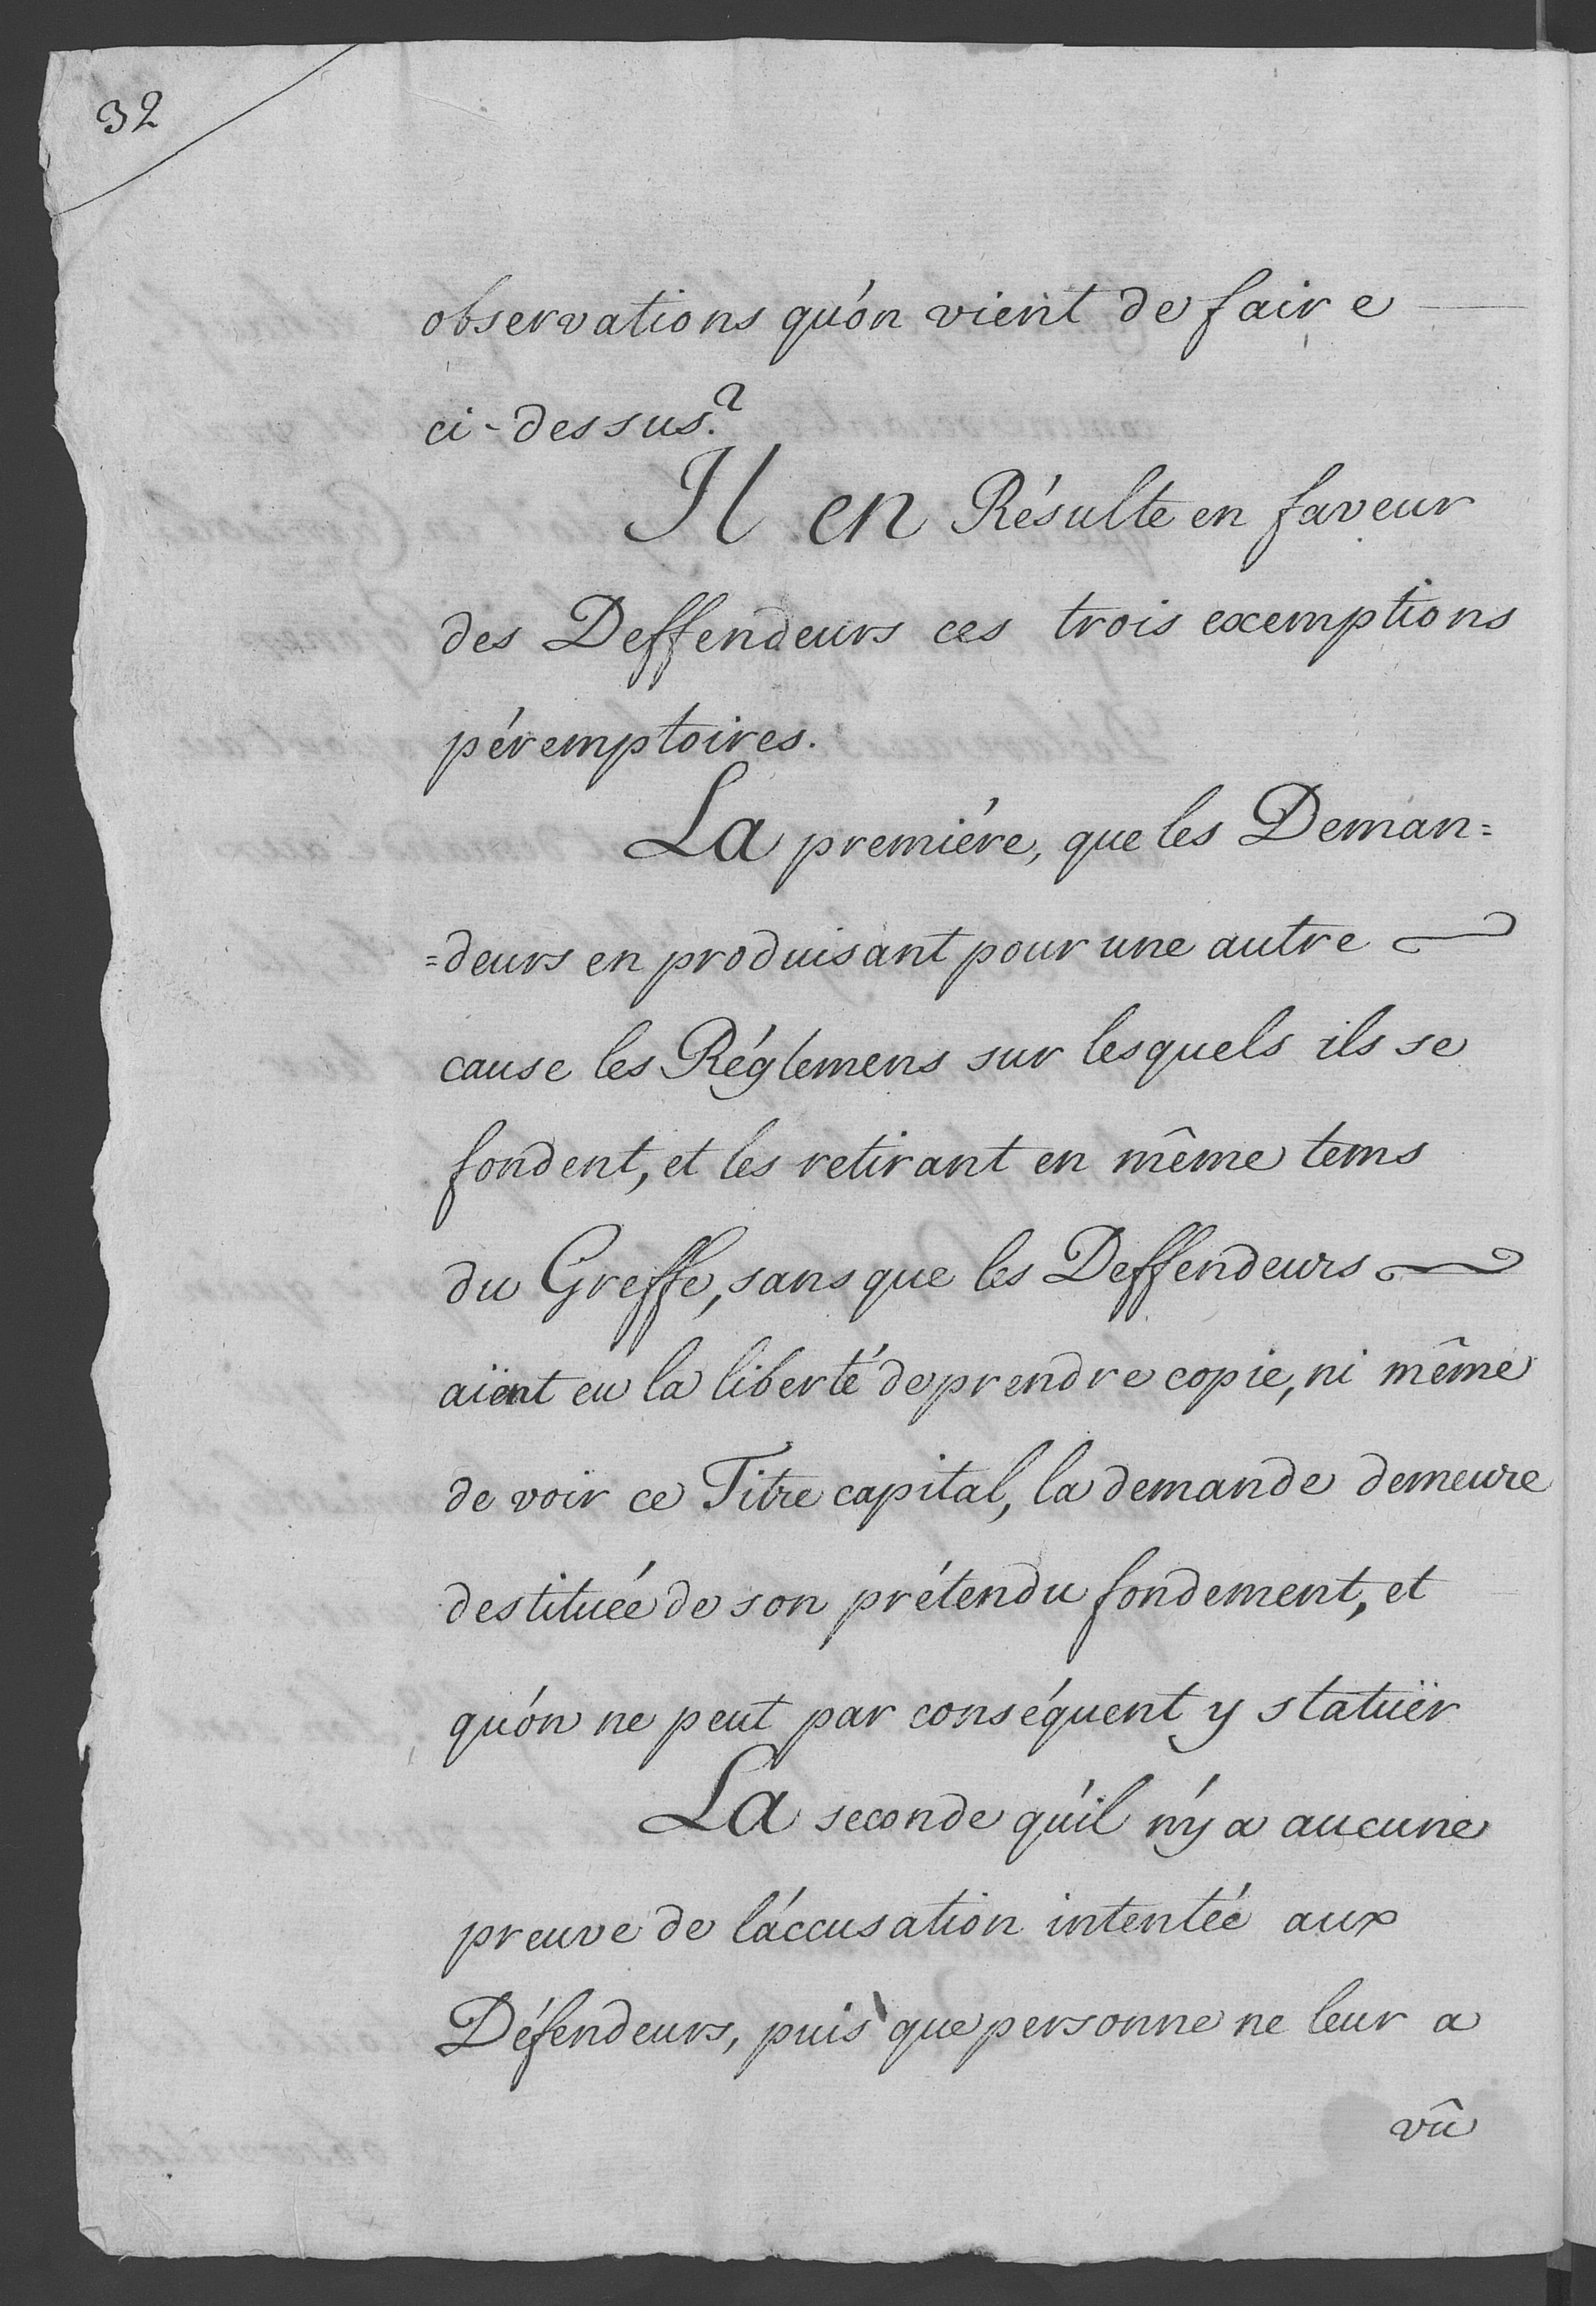 32
observations qu'on vient de faire
ci-dessus?
Il en Résulte en faveur
des Deffendeurs ces trois exemptions
péremptoires.
La premiére, que les Deman=
=deurs en produisant pour une autre
cause les Réglemens sur lesquels ils se
fondent, et les retirant en même tems
du Greffe, sans que les Deffendeurs
aïent eu la liberté de prendre copie, ni même
de voir ce Titre capital, la demande demeure
destituée de son prétendu fondement, et
qu'on ne peut par conséquent y statuër
La seconde qu'il n'y a aucune
preuve de l'accusation intentée aux
Défendeurs, puis que personne ne leur a
vû